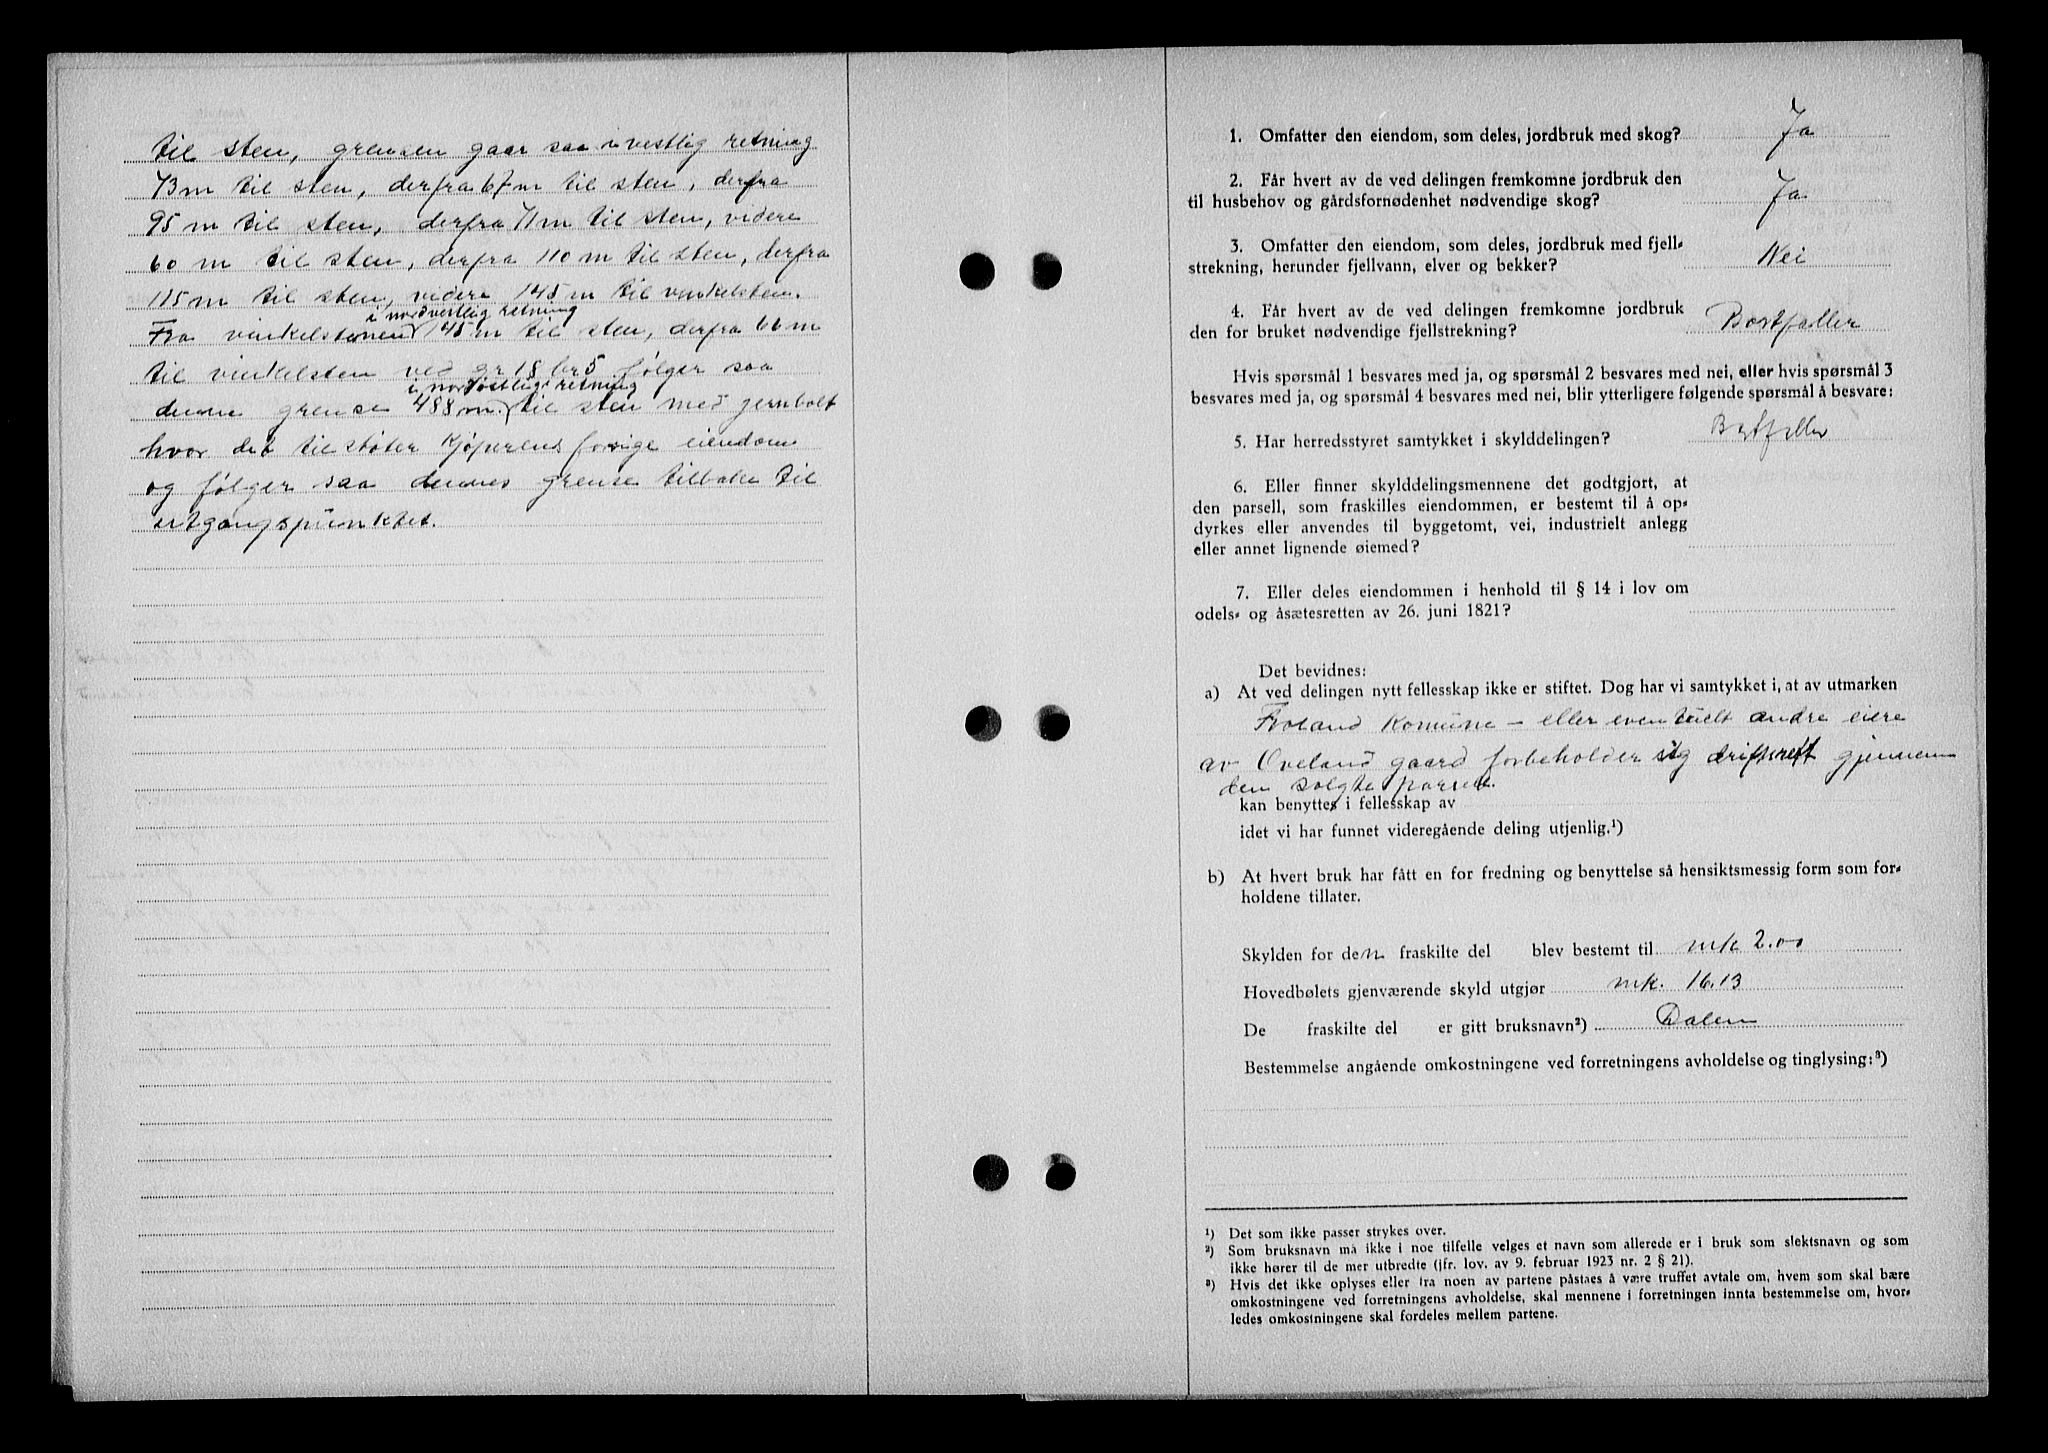 til sten, grensen gaar saa i vestlig retning
73 m til sten, derfra 67 m til sten, derfra
95 m til sten, derfra 71 m til sten, videre
60 m til sten, derfra 110 m til sten, derfra
115 m til sten, videre 145 m til vinkelsten.
i nordvestlig retning
Fra vinkelstenen 145 m til sten, derfra 66 m
til vinkelsten ved gr 18 br 5 følger saa
i nordøstlig retning
denne grense 488 m. til sten med jernbolt
hvor det til støter Kjøperens forrige eiendom
og følger saa dennes grense tilbake til
utgangspunktet.
1. Omfatter den eiendom, som deles, jordbruk med skog? Ja
2. Får hvert av de ved delingen fremkomne jordbruk den
til husbehov og gårdsfornødenhet nødvendige skog? Ja
3. Omfatter den eiendom, som deles, jordbruk med fjell-
strekning, herunder fjellvann, elver og bekker? Nei
4. Får hvert av de ved delingen fremkomne jordbruk
den for bruket nødvendige fjellstrekning? Bortfaller
Hvis spørsmål 1 besvares med ja, og spørsmål 2 besvares med nei, eller hvis spørsmål 3
besvares med ja, og spørsmål 4 besvares med nei, blir ytterligere følgende spørsmål å besvare:
5. Har herredsstyret samtykket i skylddelingen? Bortfaller
6. Eller finner skylddelingsmennene det godtgjort, at
den parsell, som fraskilles eiendommen, er bestemt til å op-
dyrkes eller anvendes til byggetomt, vei, industrielt anlegg
eller annet lignende øiemed?
7. Eller deles eiendommen i henhold til § 14 i lov om
odels- og åsætesretten av 26. juni 1821?
Det bevidnes:
a) At ved delingen nytt fellesskap ikke er stiftet. Dog har vi samtykket i, at av utmarken
Froland Komune - eller eventuelt andre eiere
av Oveland gaard forbeholder sig driftsrett gjennem
den solgte parsell.
kan benyttes i fellesskap av
idet vi har funnet videregående deling utjenlig.¹)
b) At hvert bruk har fått en for fredning og benyttelse så hensiktsmessig form som for-
holdene tillater.
Skylden for den fraskilte del blev bestemt til mk 2.00
Hovedbølets gjenværende skyld utgjør mk. 16.13
De fraskilte del er gitt bruksnavn²) Dalen
Bestemmelse angående omkostningene ved forretningens avholdelse og tinglysing:³)
¹) Det som ikke passer strykes over.
²) Som bruksnavn må ikke i noe tilfelle velges et navn som allerede er i bruk som slektsnavn og som
ikke hører til de mer utbredte (jfr. lov. av 9. februar 1923 nr. 2 § 21).
³) Hvis det ikke oplyses eller fra noen av partene påstaes å være truffet avtale om, hvem som skal bære
omkostningene ved forretningens avholdelse, skal mennene i forretningen innta bestemmelse om, hvor-
ledes omkostningene skal fordeles mellem partene.